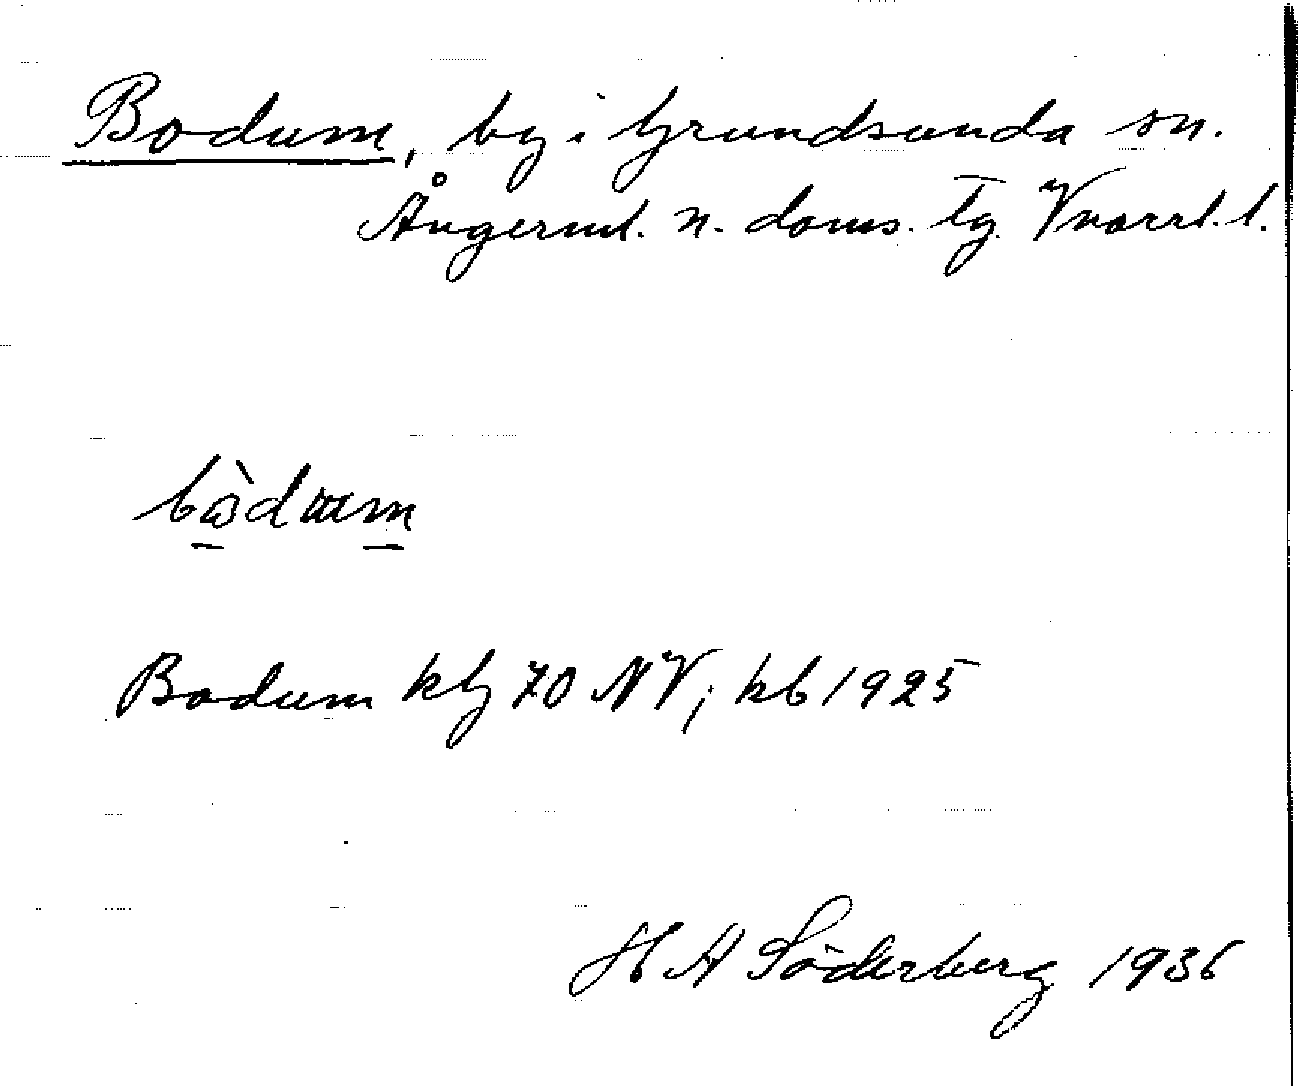 Bodum, by i Grundsunda sn.
Ångerml. n. doms. tg. Vnorrl. l.
Bodum kbg 70 NV; kb 1925
H A Söderberg 1936